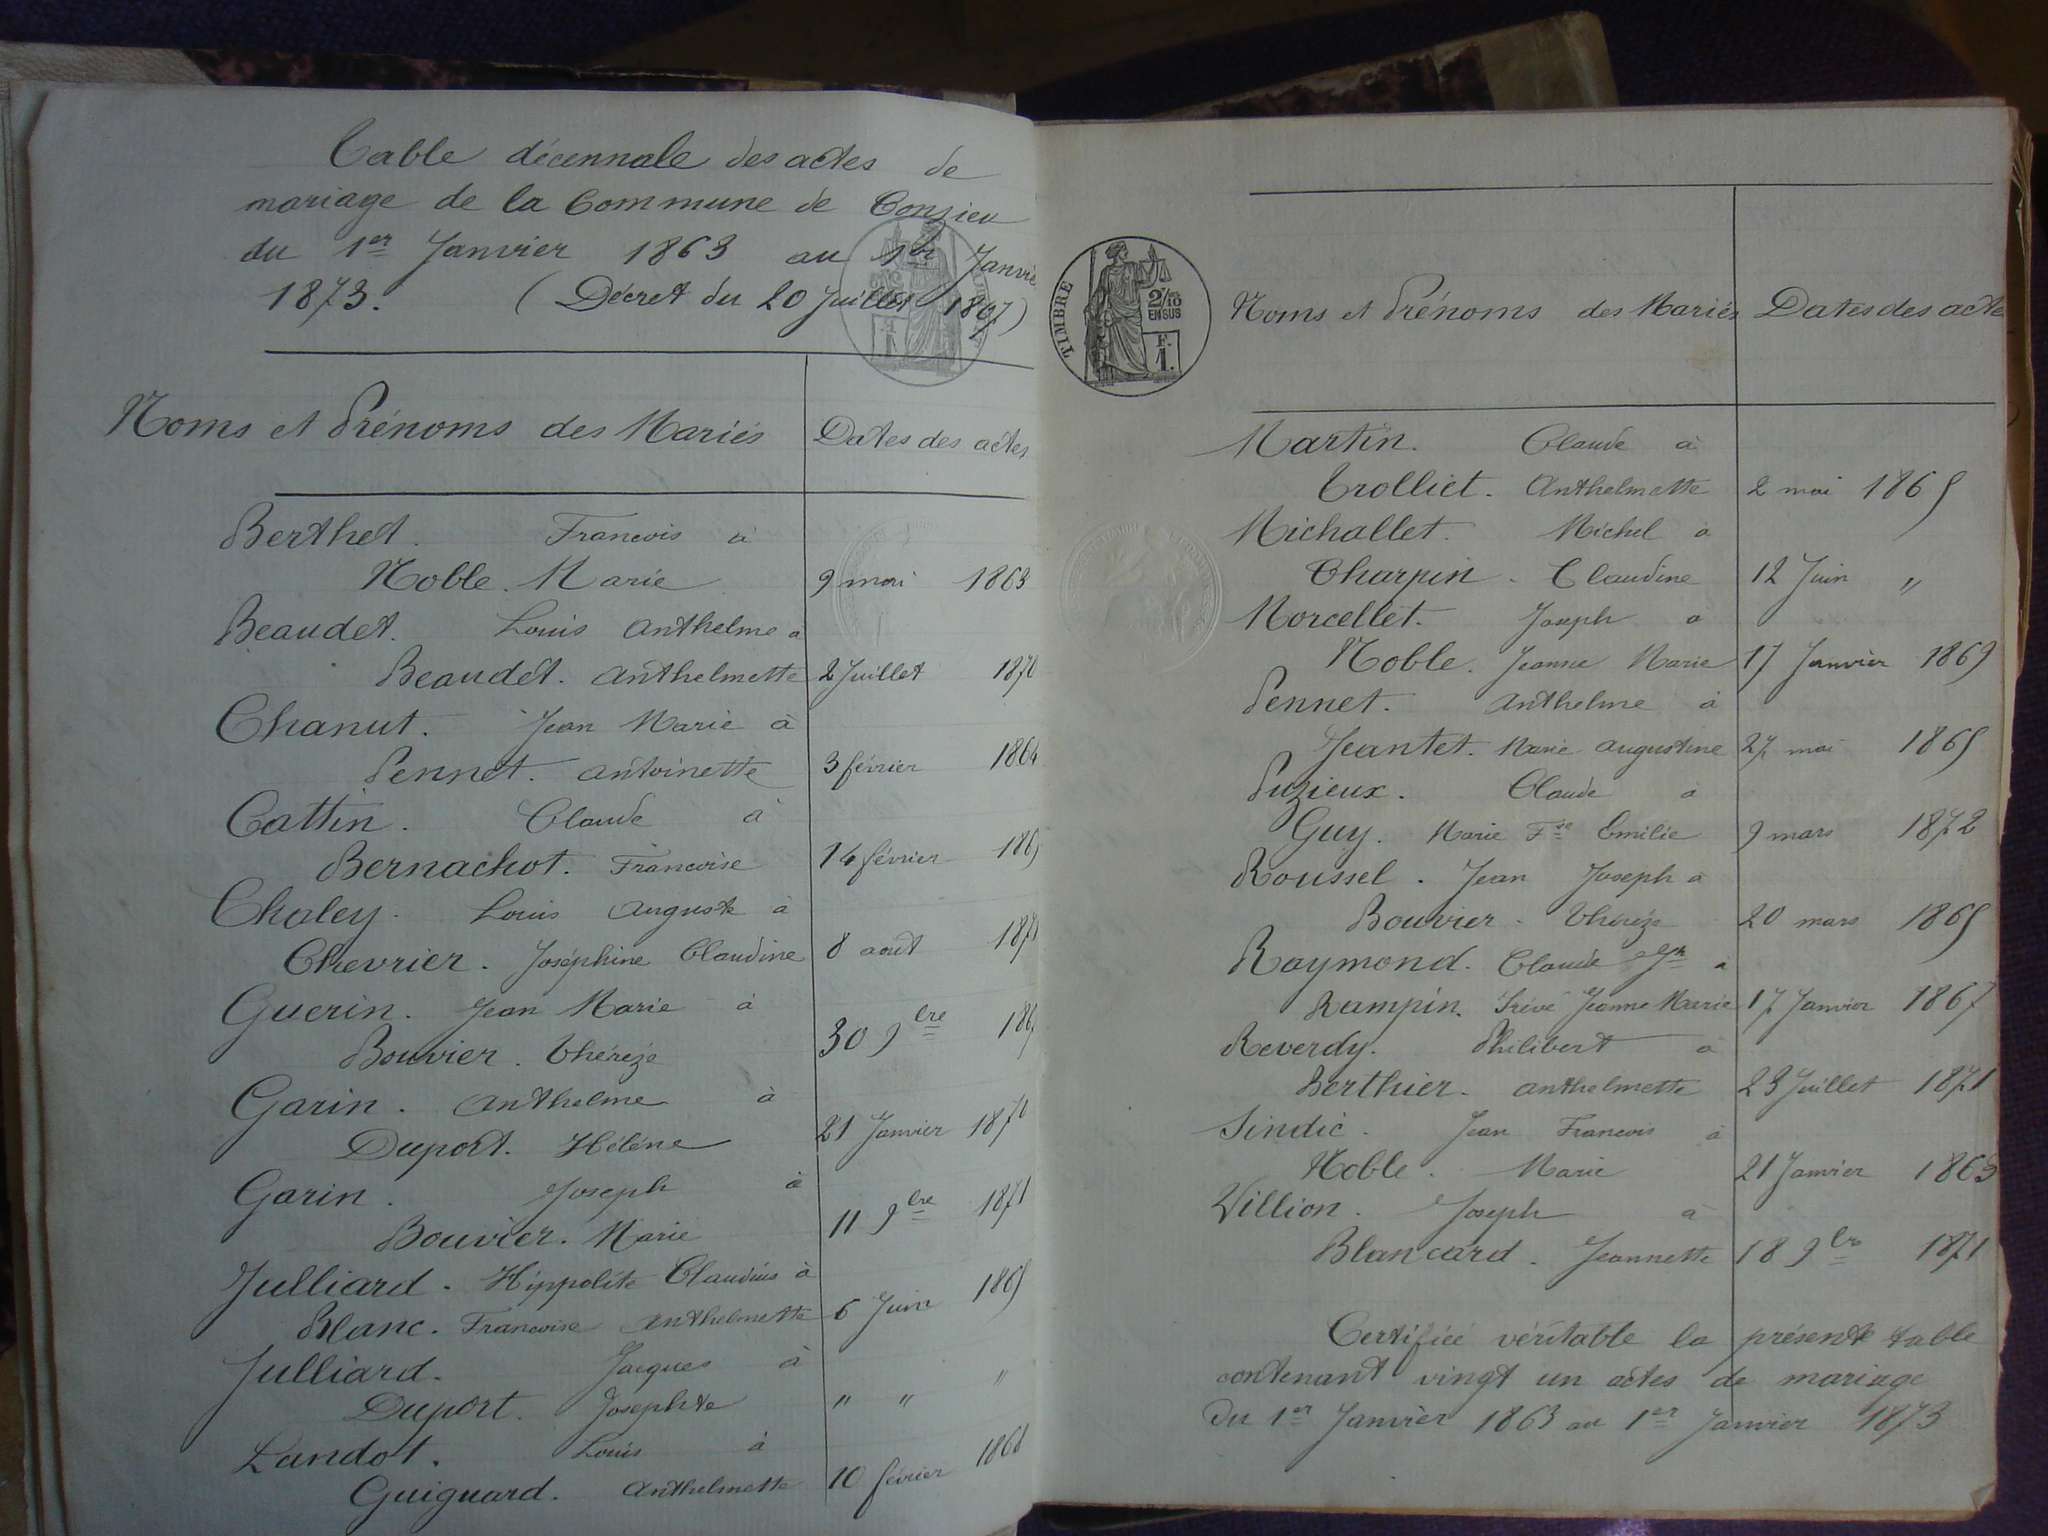 Table décennale des actes de
mariage de la Commune de Conzieu
du 1er Janvier 1863 au 1er Janvie
1873. (Décret du 20 Juillet 1807)
Noms et Prénoms des Mariés Dates des actes
Berthet. Francois à
Noble. Marie 9 mai 1863
Beaudet. Louis Anthelme à
Beaudet. Anthelmette 2 Juillet
Chanut. Jean Marie à
Pennet. Antoinette 3 février 1864
Cattin. Claude à
Bernachot. Francoise 14 février
Chaley. Louis Auguste à
Chevrier. Joséphine Claudine 8 aout
Guerin. Jean Marie à
Bouvier. Thérèze 30 9bre
Garin. Anthelme à
Duport. Hélène 21 Janvier 1870
Garin. Joseph à
Bouvier. Marie 11 9bre 1871
Julliard. Hippolite Claudius à
Blanc. Francoise Anthelmette 6 Juin 1865
Julliard. Jacques à
Duport. Josephte " " "
Landot. Louis à
Guiguard. Anthelmette 10 février 1868
TIMBRE
2/10
EN SUS
F.
1.
Noms et Prénoms des Mariés Dates des acte
Martin. Claude à
Trolliet. Anthelmette 2 mai 1865
Michallet. Michel à
Charpin. Claudine 12 Juin "
Morcellet. Joseph à
Noble. Jeanne Marie 17 Janvier 1869
Pennet. Anthelme à
Jeantet. Marie Augustine 27 mai 1865
Puzieux. Claude à
Guy. Marie Fse Emilie 9 mars 1872
Roussel. Jean Joseph à
Bouvier. Thérèze 20 mars 1865
Raymond. Claude à
Rampin. Jeanne Marie 17 Janvier 1867
Reverdy. Philibert à
Berthier. Anthelmette 23 Juillet 1871
Sindic. Jean Francois à
Noble. Marie 21 Janvier 1863
Villion. Joseph à
Blancard. Jeannette 18 9bre 1871
Certifiée véritable la présente table
contenant vingt un actes de mariage
Du 1er Janvier 1863 au 1er Janvier 1873